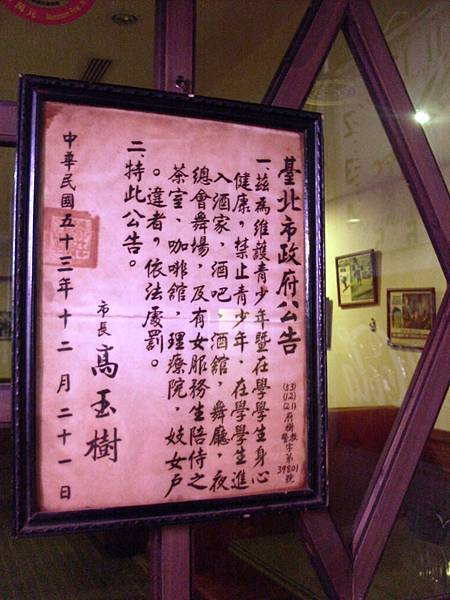 臺北市政府公告
(53)(12)(21)
府樹教警字第39801號
一、茲為維護青少年暨在學學生身心
健康，禁止青少年，在學學生進
入酒家，酒吧，酒館，舞廳，夜
總會舞場，及有女服務生陪侍之
茶室，咖啡館，理療院，妓女戶
。違者，依法處罰。
二、特此公告。
市長 高玉樹
中華民國五十三年十二月二十一日